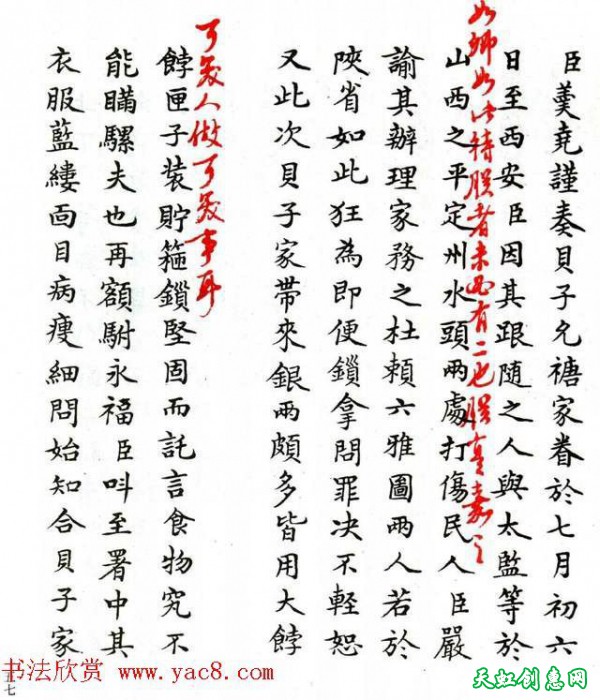 臣羹堯謹奏貝子允禟家眷於七月初六
日至西安臣因其跟隨之人與太監等於
如卿如此待朕者未必有二也朕實嘉之
山西之平定州水頭兩處打傷民人臣嚴
諭其辦理家務之杜賴六雅圖兩人若於
陝省如此狂為即便鎖拿問罪决不輕恕
又此次貝子家帶來銀兩頗多皆用大餑
可笑人做可笑事耳
餑匣子裝貯箍鎖堅固而託言食物究不
能瞞騾夫也再額駙永福臣呌至署中其
衣服藍縷面目病瘦細問始知合貝子家
五七
书法欣赏 www.yac8.com
天虹创意网